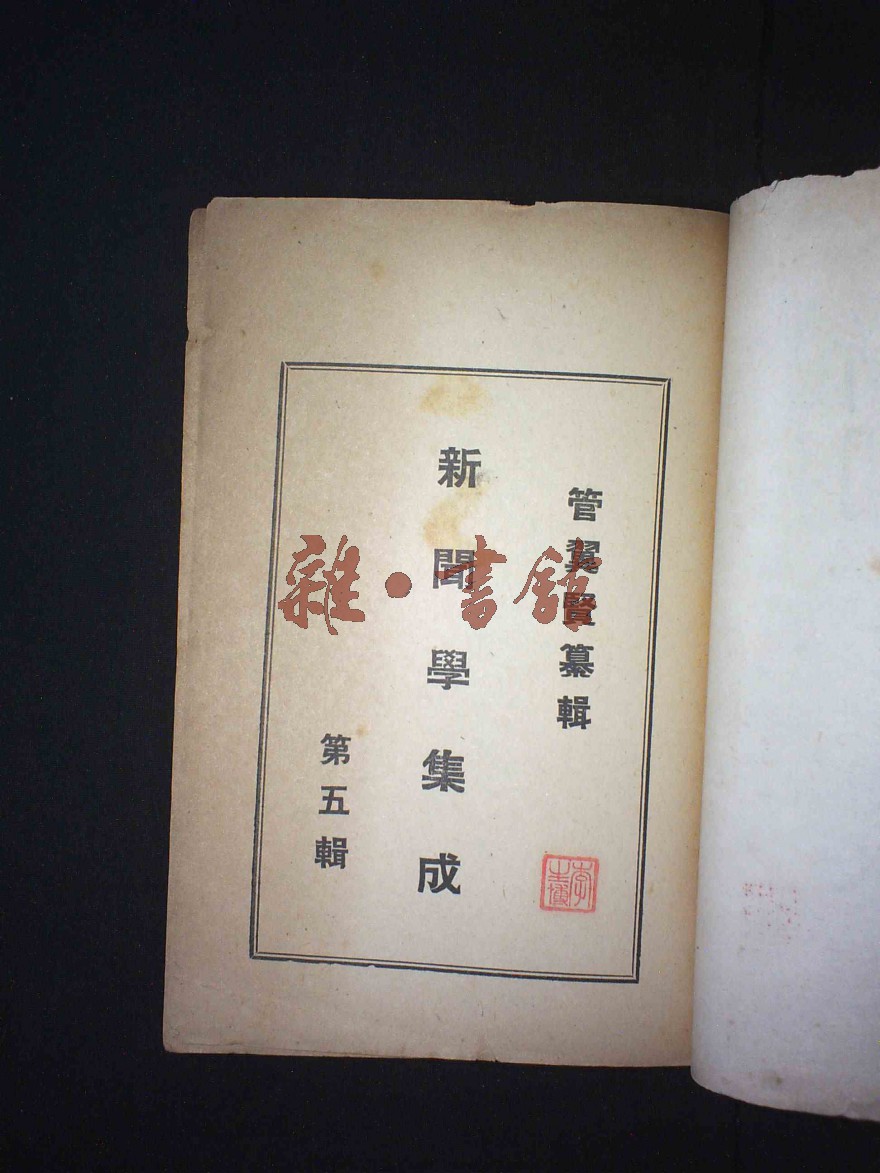 管翼賢纂輯
新聞學集成
第五輯
雜·書館